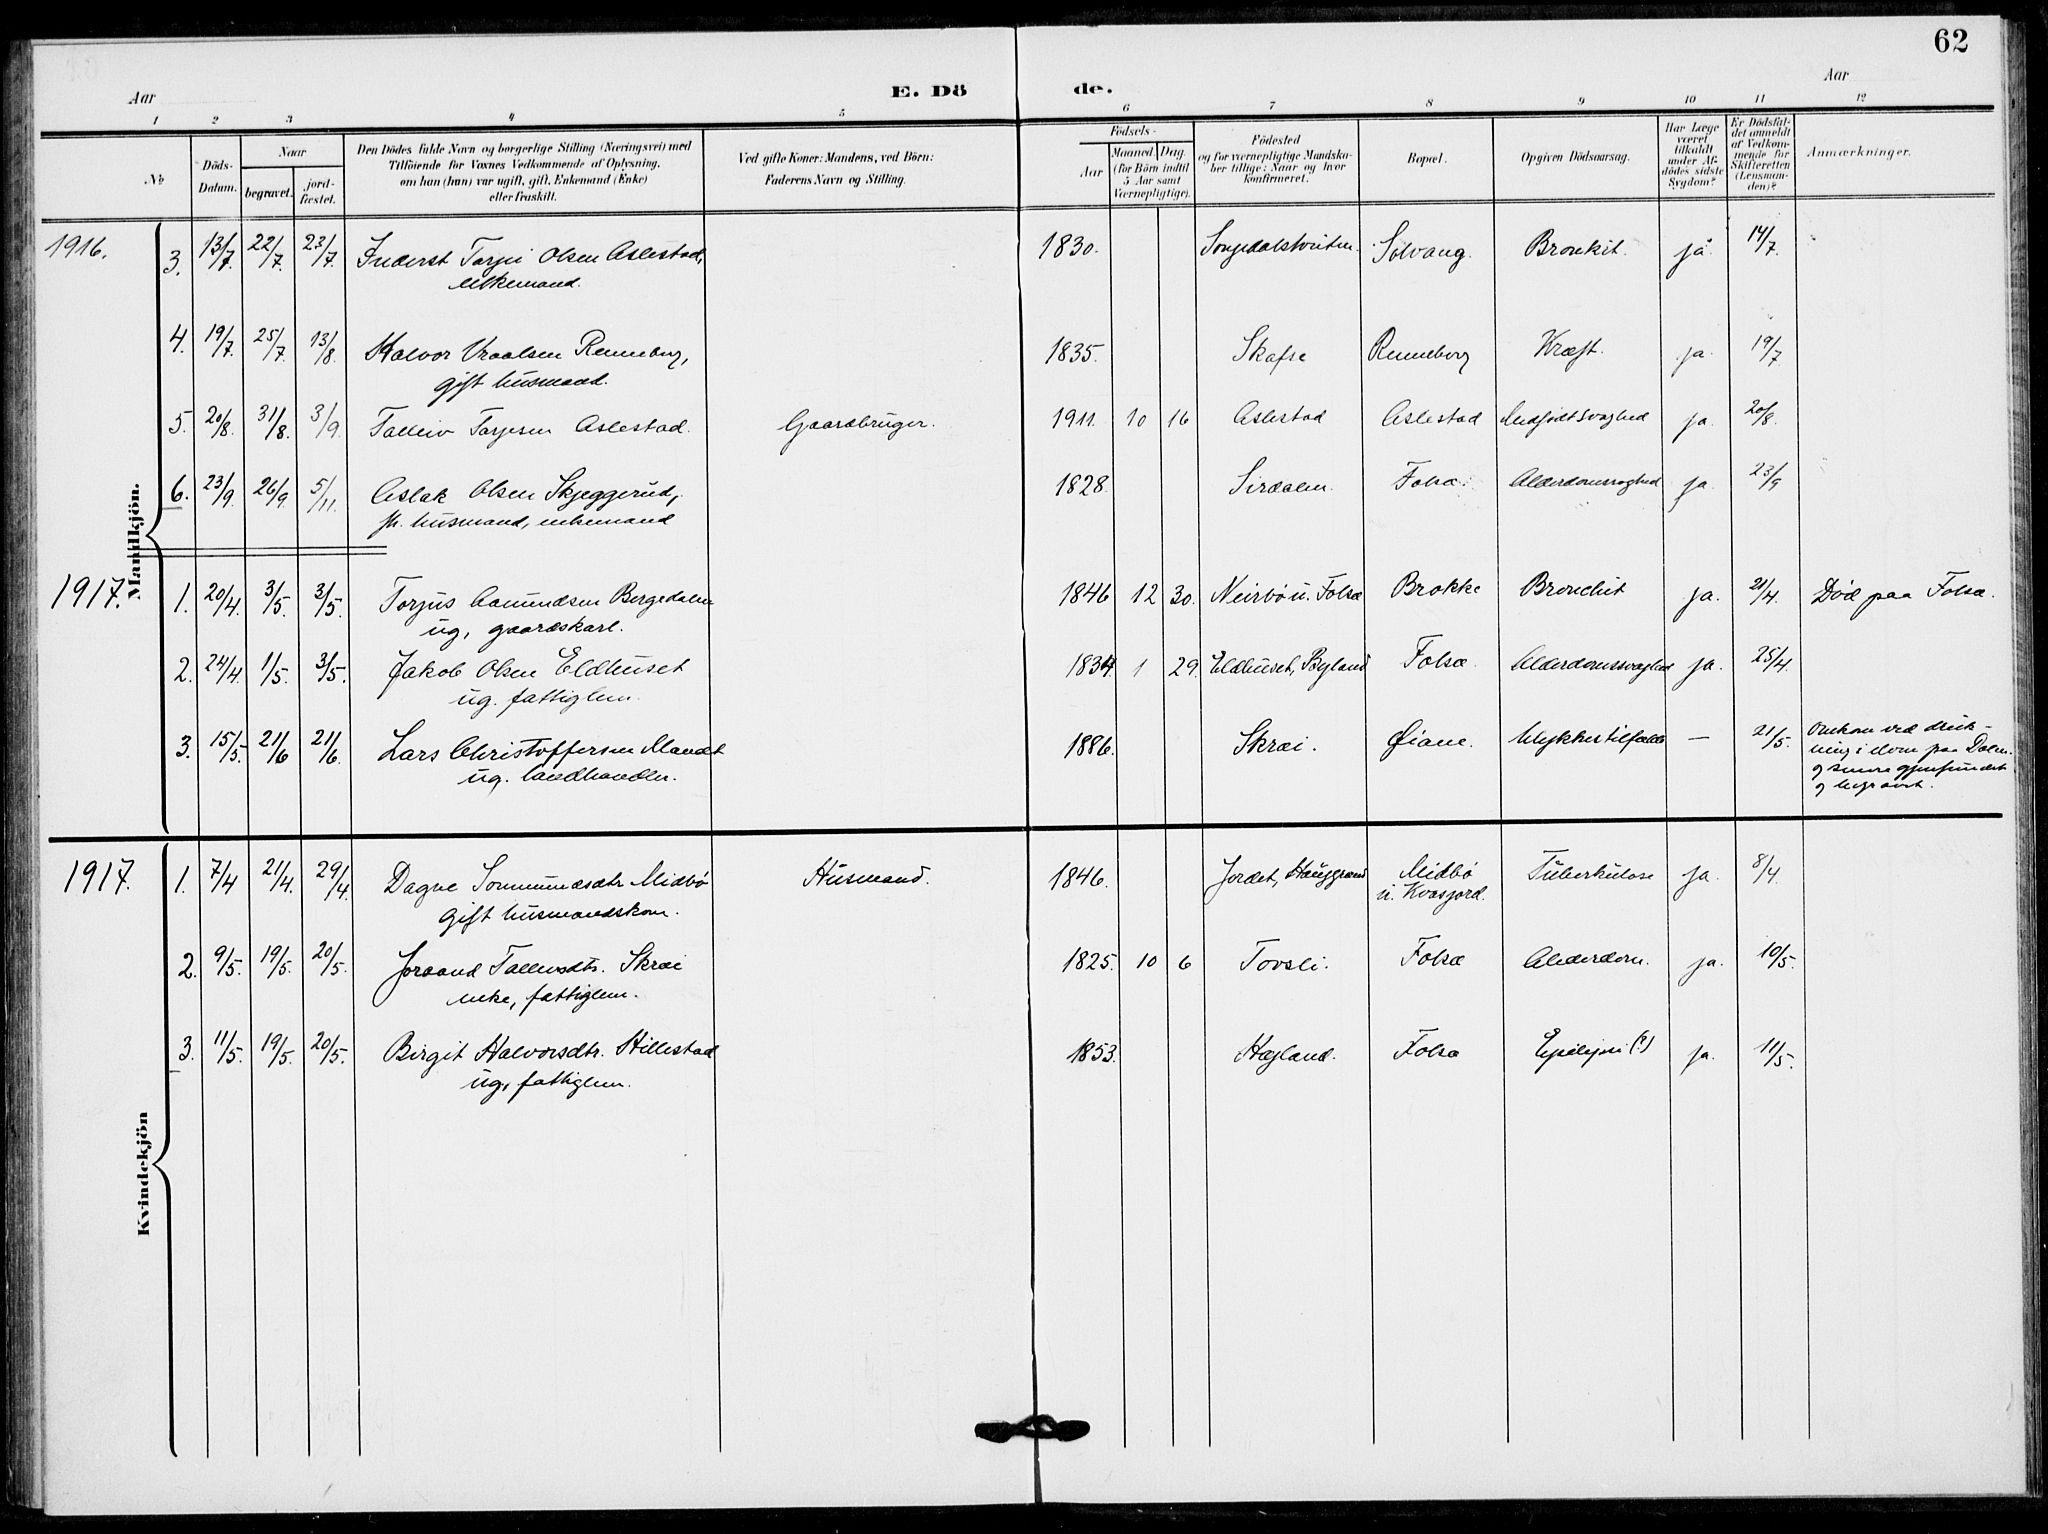 62
Aar
E. Dö
de.
Aar
1 2 3 4 5 6 7 8 9 10 11 12
No
Döds-
Datum.
Naar
begravet.
jord-
fæstet.
Den Dödes fulde Navn og borgerlige Stilling (Næringsvei) med
Tilföiende for Voxnes Vedkommende af Oplysning,
om han (hun) var ugift, gift, Enkemand (Enke)
eller fraskilt.
Ved gifte Koner: Mandens, ved Börn:
Faderens Navn og Stilling.
Födsels-
Aar
Maaned Dag.
(for Börn indtil
5 Aar samt
Værnepligtige).
Födested
og for værnepligtige Mandska-
ber tillige: Naar og hvor
konfirmeret.
Bopæl.
Opgiven Dödsaarsag.
Har Læge
været
tilkaldt
under Af-
dödes sidste
Sygdom?
Er Dödsfal-
det anmeldt
af Vedkom-
mende for
Skifteretten
(Lensman-
den)?
Anmærkninger.
Mandkjön.
1916.
3. 13/7. 22/7. 23/7. Inderst Tarjei Olsen Aslestad, 1830. Solvang. Bronkit. ja. 14/7.
enkemand.
4. 19/7. 25/7. 13/8. Halvor Vraalsen Renneborg, 1835. Skafse Renneborg Kræft. ja. 19/7.
gift husmand.
5. 20/8. 31/8. 3/9. Talleiv Tarjesen Aslestad. Gaardbruger. 1911. 10 16 Aslestad Aslestad Medfödt svaghed ja. 20/8.
6. 23/9. 26/9. 5/11. Aslak Olsen Skjeggerud, 1828. Sirdalen. Folsæ. Alderdomssvaghed ja. 23/9
fh. husmand, enkemand
1917.
1. 20/4. 3/5. 3/5. Torjus Aamundsen Bergedalen 1846 12 30. Neirbö u. Folsæ Brokke Bronchit ja. 21/4. Död paa Folsæ.
ug, gaardskarl.
2. 24/4. 1/5. 3/5. Jakob Olsen Eldhuset 1834 1 29. Eldhuset, Bygland Folsæ. Alderdomssvaghed ja. 25/4.
ug. fattiglem.
3. 15/5. 21/6 21/6. Lars Christoffersen Mandt 1886. Skrei. Öiane. Ulykkestilfælde — 21/5. Omkom ved druk-
ug. landhandler. ning i elven paa Dalen
og senere gjenfundet
og begravet.
Kvindekjön
1917.
1. 7/4 21/4. 29/4. Dagne Sommundsdtr Midbö Husmand. 1846. Jordet, Hauggrend Midbö Tuberkulose ja. 8/4.
gift husmandskone. u. Kvasjord.
2. 9/5. 19/5. 20/5. Joraand Talleivsdtr. Skrei 1825. 10 6 Tovsli. Folsæ Alderdom. ja. 10/5.
enke, fattiglem.
3. 11/5. 19/5. 20/5. Birgit Halvorsdtr. Hillestad 1853. Hegland. Folsæ Epilepsi (?) ja. 11/5.
ug, fattiglem.